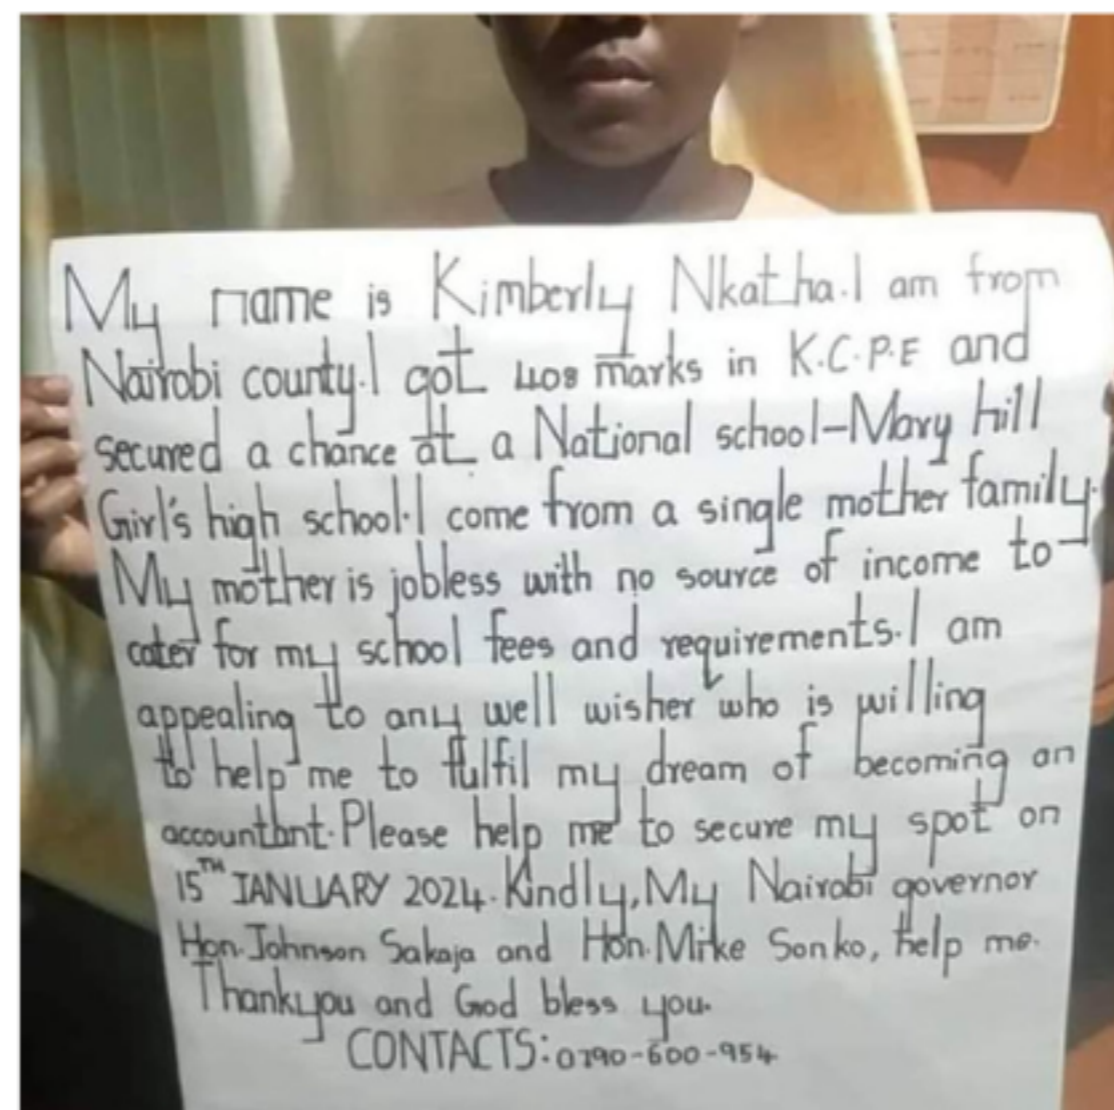 My name is Kimberly Nkatha.I am from
Nairobi county.I got 408 marks in K.C.P.E and
secured a chance at a National school-Mary hill
Girl's high school.I come from a single mother family.
My mother is jobless with no source of income to
cater for my school fees and requirements.I am
appealing to any well wisher who is willing
to help me to fulfil my dream of becoming an
accountant.Please help me to secure my spot on
15TH JANUARY 2024.Kindly,My Nairobi governor
Hon.Johnson Sakaja and Hon.Mike Sonko, help me.
Thankyou and God bless you.
CONTACTS:0790-600-954